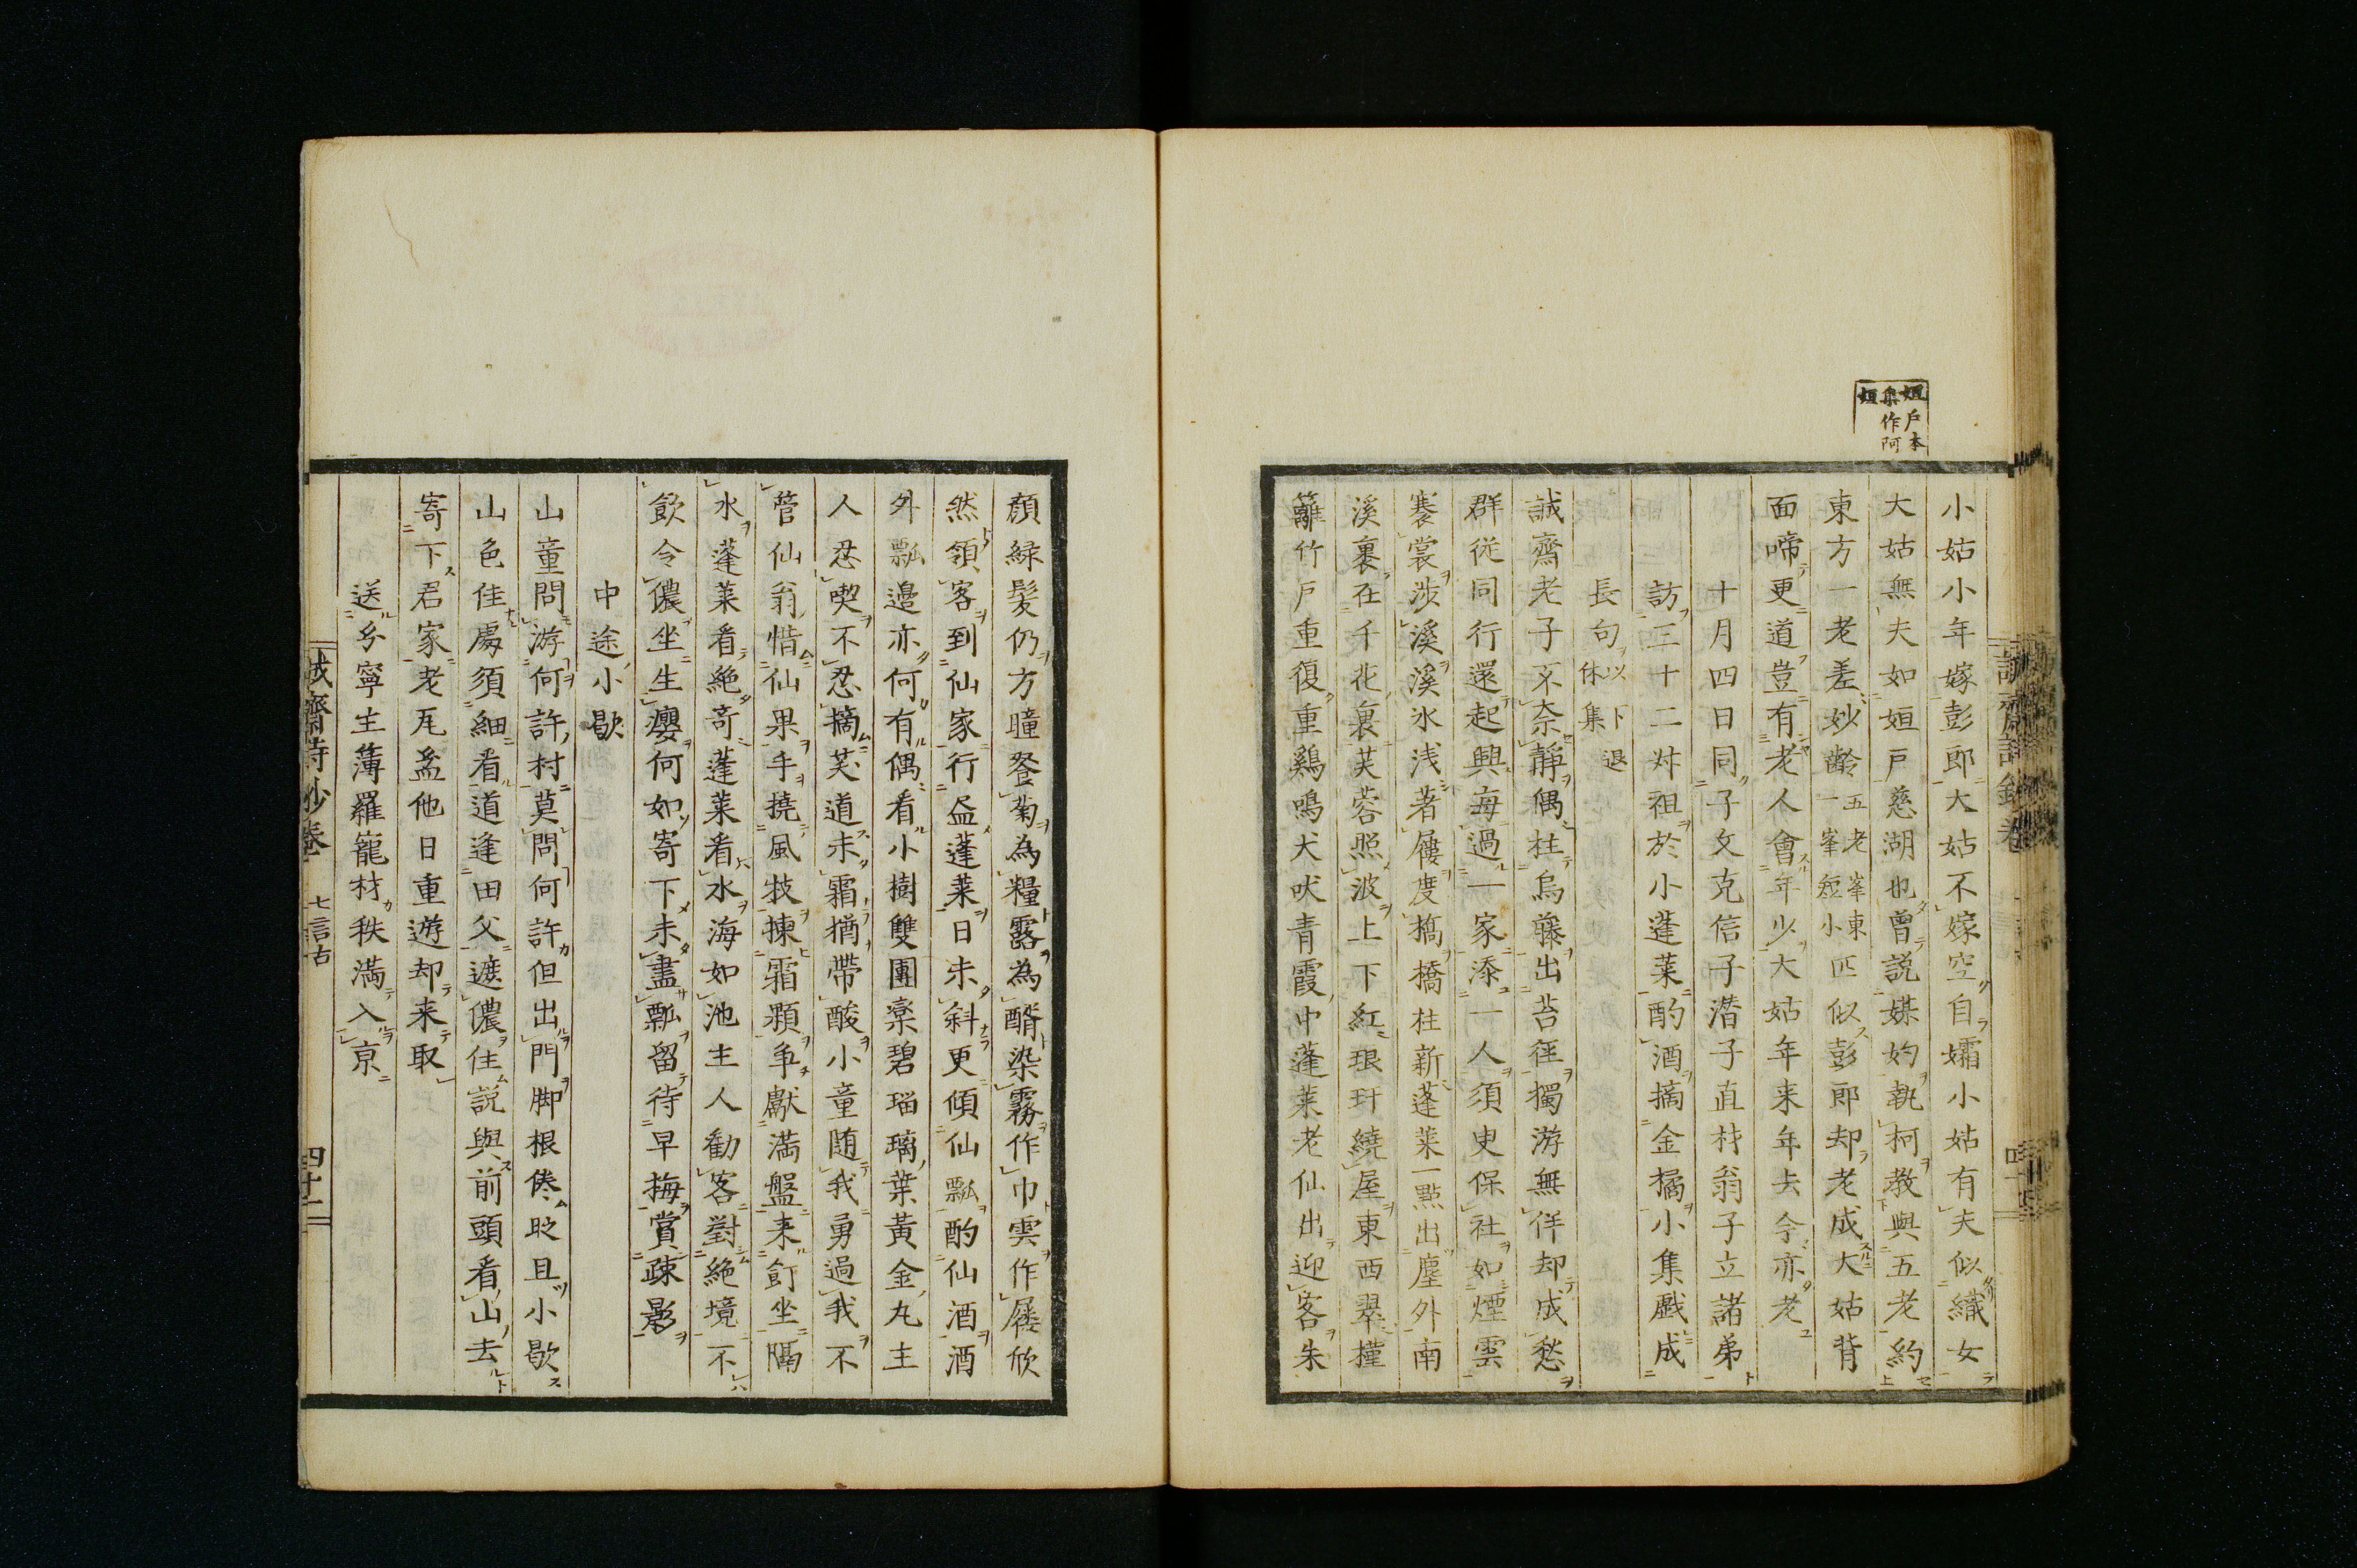 姮戶本
集作阿
姮
小姑小年嫁彭郎大姑不嫁空自孀小姑有夫似織女
大姑無夫如姮戶慈湖也曾說媒妁執柯教與五老約
東方一老差妙齡五老峯東一峯短小匹似彭郎却老成大姑背
面啼更道豈有老人會年少大姑年来年去今亦老
十月四日同子文克信子潜子直材翁子立諸弟
訪三十二叔祖於小蓬莱酌酒摘金橘小集戲成
長句以下退休集
誠齋老子不奈靜偶拄烏藤出苔徑獨游無伴却成愁
群從同行還起興每過一家添一人須臾保社如煙雲
褰裳涉溪溪水浅著屨度橋橋柱新蓬莱一點出塵外南
溪裏在千花裏芙蓉照波上下紅琅玕繞屋東西翠槿
籬竹戶重復重鷄鳴犬吠青霞中蓬莱老仙出迎客朱
顏緑髮仍方瞳餐菊為糧露為醑染霧作巾雲作屨欣
然領客到仙家行盃蓬莱日未斜更傾仙瓢酌仙酒酒
外瓢邉亦何有偶看小樹雙團欒碧瑙璃葉黄金丸主
人忍喫不忍摘笑道未霜猶帶酸小童随我勇過我不
管仙翁惜仙果手撓風枝揀霜顆争獻滿盤来飣坐隔
水蓬莱看絶竒蓬莱看水海如池主人勸客對絶境不
飲令儂坐生癭何如寄下未盡瓢留待早梅賞疎影
中途小歇
山童問游何許村莫問何許但出門脚根倦眨且小歇
山色佳處須細看道逢田父遮儂住說與前頭看山去
寄下君家老瓦盆他日重遊却来取
送分寧主薄羅寵材秩滿入京
誠齋詩鈔卷 七言古 四十二